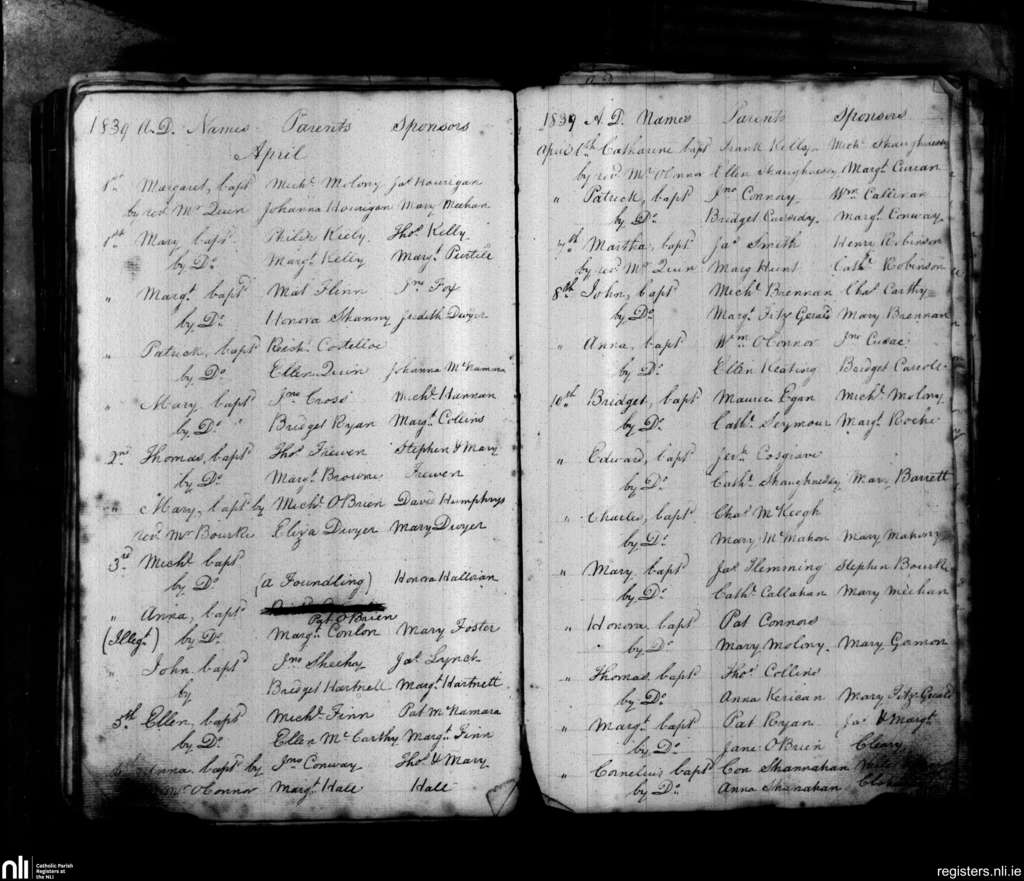 1839 A.D. Names Parents Sponsors
April
1st Margaret, bapt Michl Molony Jas Hourigan
by revd Mr Quin Johanna Hourigan Mary Meehan
1st Mary bapt Kiely Thos Kelly
by Do Margt Kelly Maryt
" Margt bapd Mat Flinn Jno Fox
by Do Honora Shanny Judeth Dwyer
" Patrick, bapt Richd Costelloe
by Do Ellen Quin Johanna McNamara
" Mary bapt Jno Cross Michl Hannan
by Do " Bridget Ryan Margt Collins
2nd Thomas, bapt Thos Frewen Stephen & Mary
by Do Margt Browne Frewen
" Mary, bapt by Michl O'Brien David Humphrys
revd Mr Bourke Eliza Dwyer Mary Dwyer
3rd Michl bapt
by Do (a Foundling) Honora Halloran
" Anna, bapt
Pat O'Brien
(Illegt) by Do Margt Conlon Mary Foster
" John bapt Jno Sheehy Jas Lynch
by Bridget Hartnell Margt Hartnett
5th Ellen, bapt Michl Finn Pat McNamara
by Do Ellen McCarthy Margt Finn
Anna bapt by Jno Conway Thos & Mary
Mr O'Connor Margt Hall Hall
1839 A.D. Names Parents Sponsors
April 6th Catharine bapt Frank Kelly Michl Shaughnessy
by revd Mr O'Connor Ellen Shaughnessy Margt Curran
" Patrick, bapt Jno Conway Wm Callinan
by Do Bridget Cassidy Margt Conway
7th Martha, bapt Jas Smith Henry Robinson
by revd Mr Quin Marg Hunt Cathe Robinson
8th John, bapt Michl Brennan Chas Carthy
by Do Margt Fitz Gerald Mary Brennan
" Anna, bapt Wm O'Connor Jno Cusac
by Do Ellen Keating Bridget Carroll
10th Bridget, bapt Maurice Egan Michl Molony
by Do Cathe Seymour Margt Roche
" Edward, bapt Cosgrave
by Do Cathe Shaughnessy Mary Barrett
" Charles, bapt Chas McKeogh
by Do Mary McMahon Mary Mahony
" Mary bapt Jas Flemming Stephen Bourke
by Do Cathe Callahan Mary Meehan
" Honora bapt Pat Connors
by Do Mary Molony Mary Gorman
" Thomas, bapt Thos Collins
by Do Anna Kerican Mary Fitz Gerald
" Margt bapt Pat Ryan Jas & Margt
by Do Jane O'Brien Cleary
" Cornelius bapt Con Shannahan
by Do Anna Shanahan
nli Catholic Parish
Registers at
the NLI
registers.nli.ie